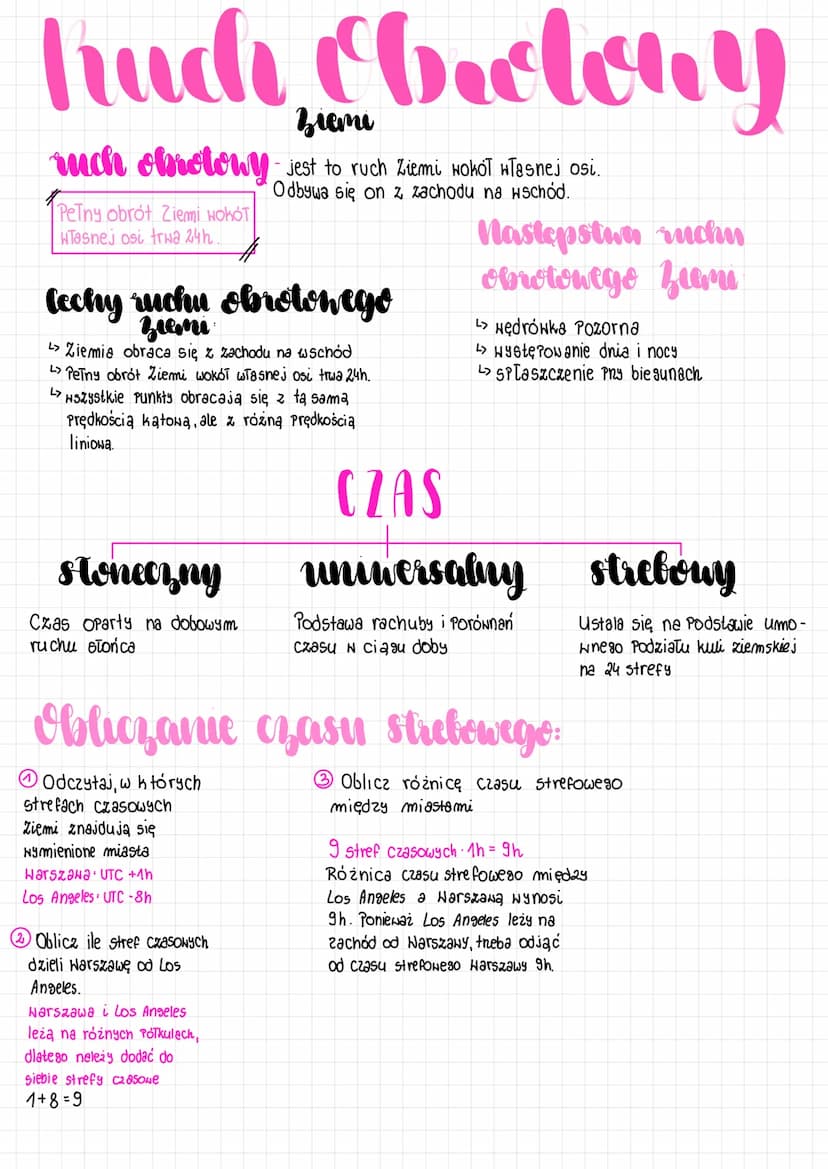 Ruch Obrotowy
Ziemi
ruch obrotowy - jest to ruch Ziemi wokół własnej osi.
Odbywa się on z zachodu na wschód.
Pełny obrót Ziemi wokół
własnej osi trwa 24h.
Następstwa ruchu
obrotowego Ziemi
↳ wędrówka pozorna
↳ występowanie dnia i nocy
↳ spłaszczenie przy biegunach
Cechy ruchu obrotowego
Ziemi:
↳ Ziemia obraca się z zachodu na wschód
↳ Pełny obrót Ziemi wokół własnej osi trwa 24h.
↳ wszystkie punkty obracają się z tą samą
prędkością kątową, ale z różną prędkością
liniową.
CZAS
słoneczny
Czas oparty na dobowym
ruchu słońca
uniwersalny
Podstawa rachuby i porównań
czasu w ciągu doby
strefowy
Ustala się na podstawie umo-
wnego podziału kuli ziemskiej
na 24 strefy
Obliczanie czasu strefowego:
1 Odczytaj, w których
strefach czasowych
Ziemi znajdują się
wymienione miasta
Warszawa: UTC +1h
Los Angeles: UTC -8h
2 Oblicz ile stref czasowych
dzieli Warszawę od Los
Angeles.
Warszawa i Los Angeles
leżą na różnych półkulach,
dlatego należy dodać do
siebie strefy czasowe
1+8=9
3 Oblicz różnicę czasu strefowego
między miastami
9 stref czasowych · 1h = 9h
Różnica czasu strefowego między
Los Angeles a Warszawą wynosi
9h. Ponieważ Los Angeles leży na
zachód od Warszawy, trzeba odjąć
od czasu strefowego Warszawy 9h.